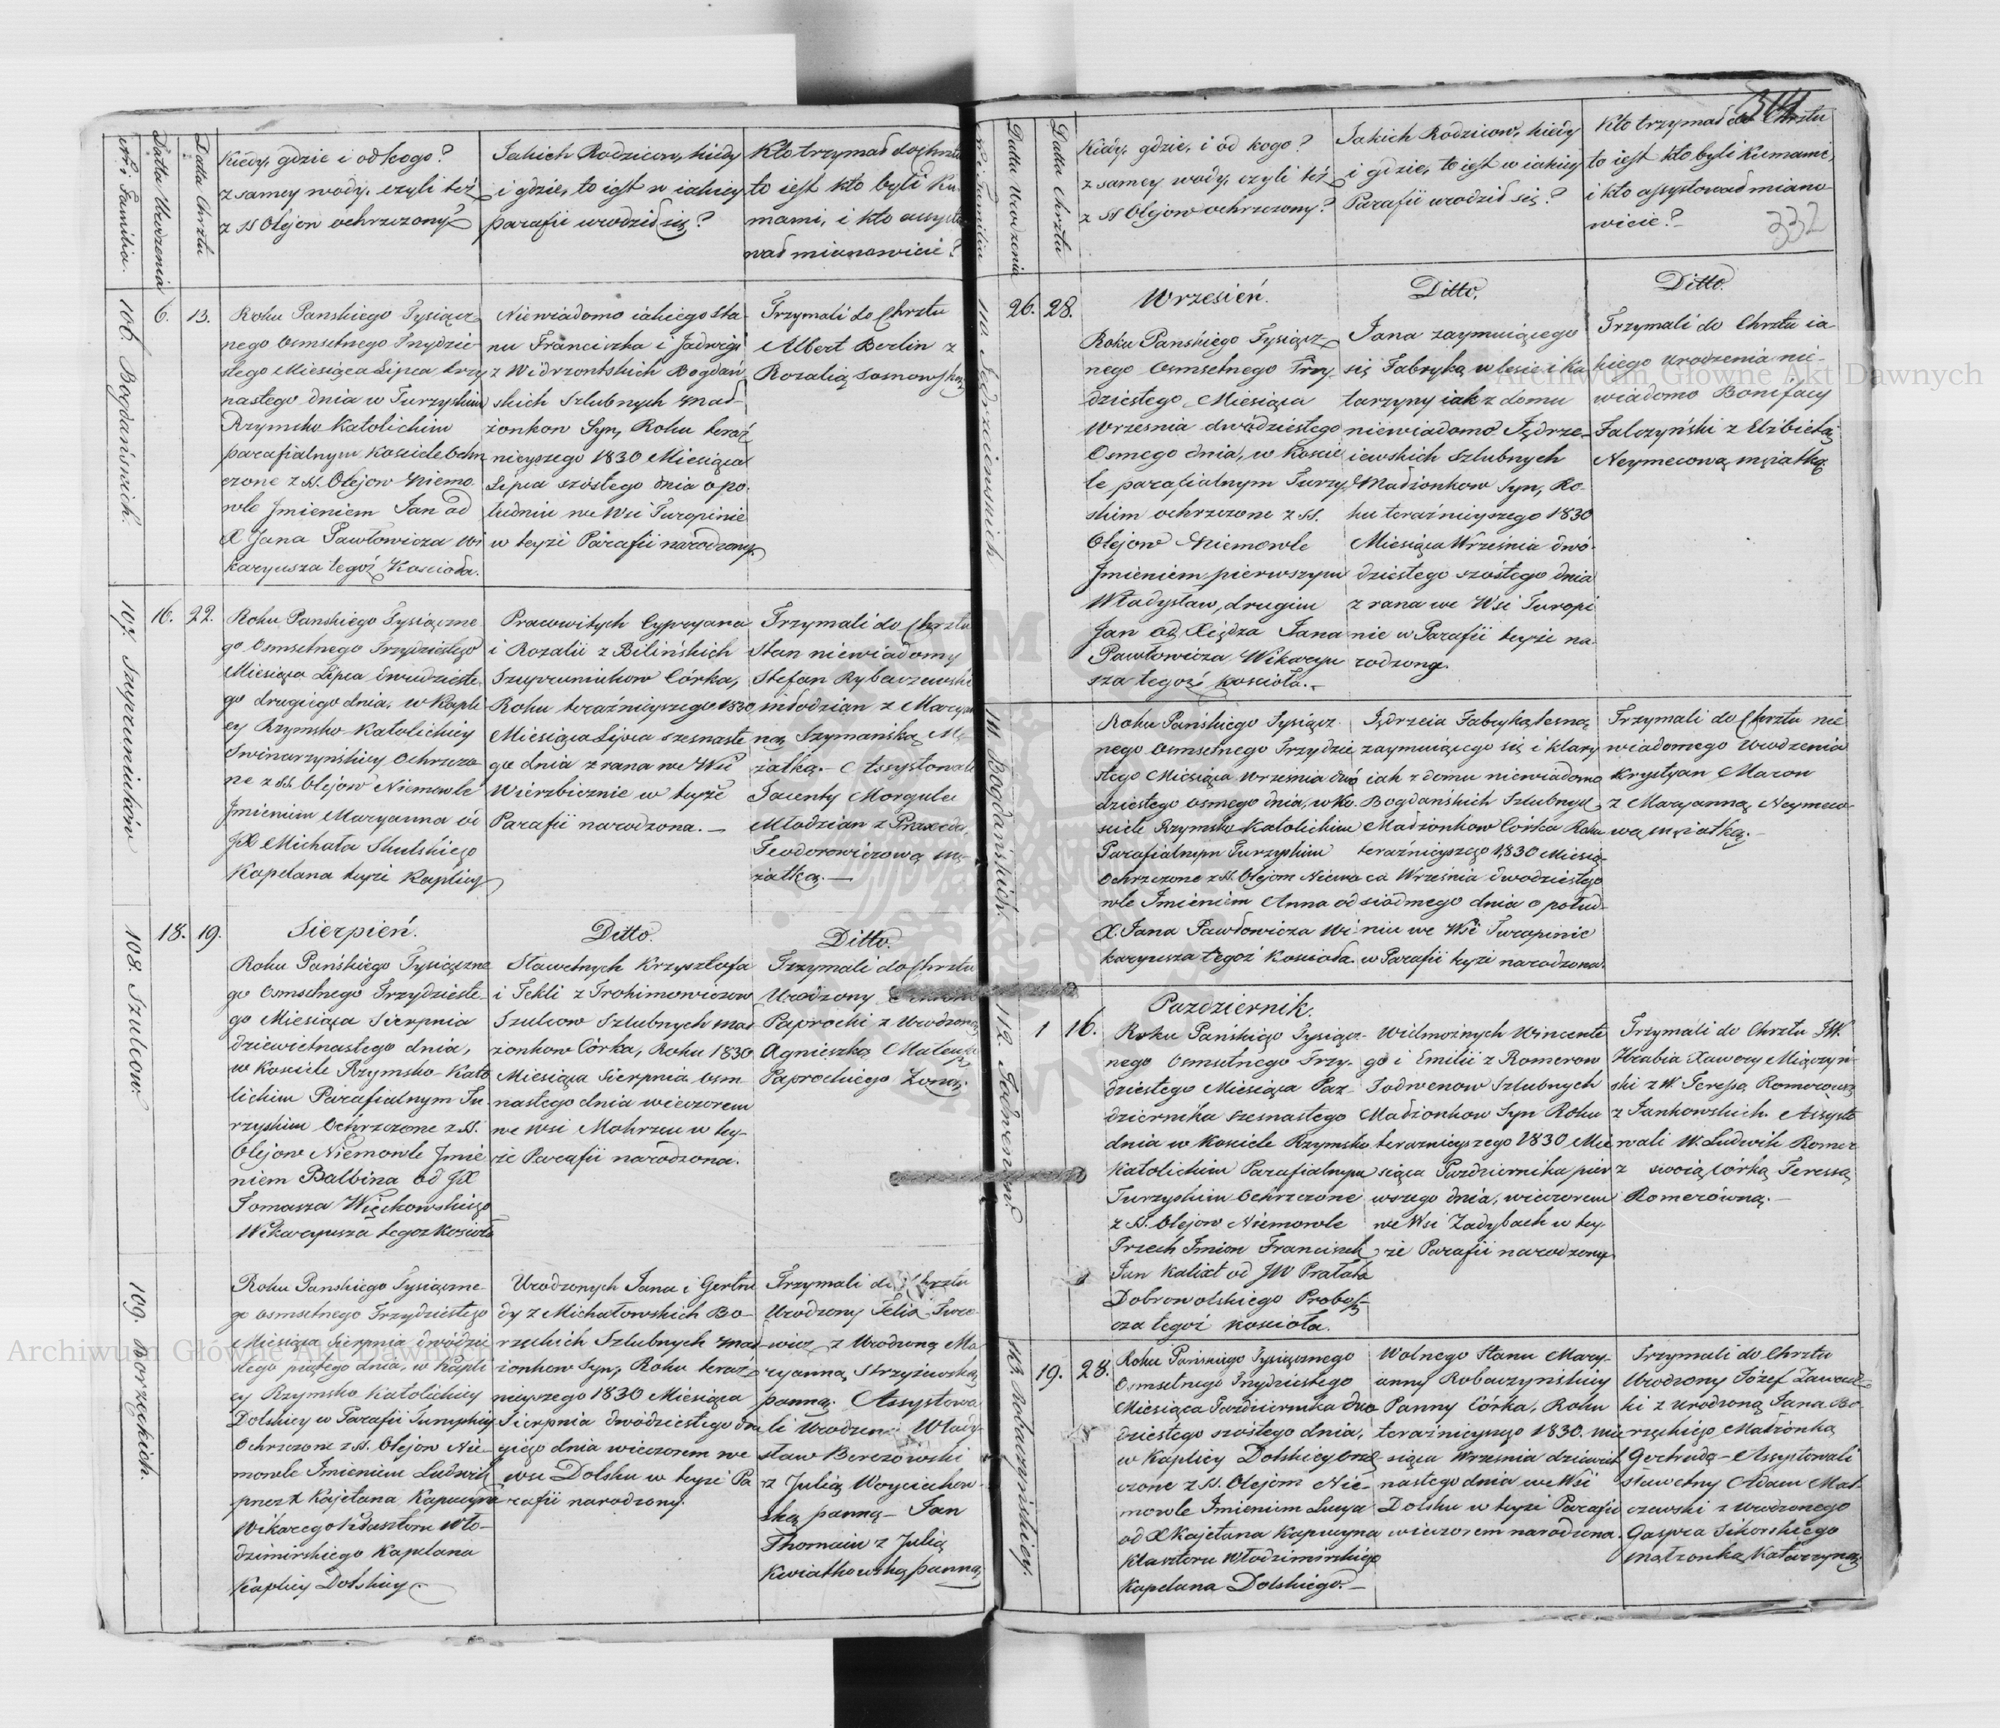 Nr i Familia.
Datta Urodzenia
Datta Chrztu
Kiedy, gdzie i od kogo?
z samey wody, czyli też
z SS Olejow ochrzczony?
Jakich Rodzicow, kiedy
i gdzie, to iest w iakiey
parafii urodził się?
Kto trzymał do Chrztu
to iest kto byli Ku-
mami, i kto assysto
wał mianowicie?
106. Bogdańskich.
6.
13.
Roku Panskiego Tysiącz
nego Osmsetnego Trzydzie
stego Miesiąca Lipca trzy
nastego dnia w Turzyskim
Rzymsko Katolickim
parafialnym Kosciele Ochrz
czone z SS. Olejow Niemo
wle Jmieniem Jan od
X Jana Pawłowicza Wi
karyusza tegoż Koscioła.
Niewiadomo iakiego sta
nu Franciszka i Jadwigi
z Widrzontskich Bogdań
skich Szlubnych Mał
żonkow Syn, Roku teraź
nieyszego 1830 Miesiąca
Lipca szóstego dnia o po
łudniu we Wsi Turopinie
w teyże Parafii narodzony.
Trzymali do Chrztu
Albert Berlin z
Rozalią Sosnowską
107. Szupruniuków
16.
22.
Roku Panskiego Tysiączne
go Osmsetnego Trzydziestego
Miesiąca Lipca dwudzieste
go drugiego dnia, w Kapli
cy Rzymsko-Katolickiey
Swinarzyńskiey Ochrzczo
ne z SS. Olejow Niemowle
Jmieniem Maryanna od
JX Michała Skulskiego
Kapelana teyże Kaplicy
Pracowitych Cypryana
i Rozalii z Bilińskich
Szupruniukow Córka,
Roku teraźnieyszego 1830
Miesiąca Lipca szesnaste
go dnia z rana we Wsi
Wierzbicznie w teyże
Parafii narodzona.—
Trzymali do Chrztu
Stan niewiadomy
Stefan Rybaczewski
młodzian z Maryan
ną Szymańską Mę
żatką.— Assystowali
Jacenty Morgulec
Młodzian z Praxedą
Teodorowiczową mę
żatką.—
108. Szulcow.
18.
19.
Sierpień.
Roku Pańskiego Tysiączne
go Osmsetnego Trzydzieste
go Miesiąca Sierpnia
dziewietnastego dnia,
w Kosciele Rzymsko-Kato
lickim Parafialnym Tu
rzyskim Ochrzczone z SS.
Olejow Niemowle Jmie
niem Balbina od JX
Tomasza Więckowskiego
Wikaryusza tegoż Kościoła
Ditto.
Sławetnych Krzysztofa
i Tekli z Trohimowiczow
Szulcow Szlubnych Mał
żonkow Córka, Roku 1830
Miesiąca Sierpnia osm
nastego dnia wieczorem
we wsi Mokrzcu w tey
że Parafii narodzona.
Ditto.
Trzymali do Chrztu
Urodzony
Paprocki z Urodzoną
Agnieszką Mateusza
Paprockiego Żoną.
109. Borzęckich.
Roku Panskiego Tysiączne
go Osmsetnego Trzydziestego
Miesiąca Sierpnia dwódzie
stego piątego dnia, w Kapli
cy Rzymsko Katolickiey
Dolskiey w Parafii Turzyskiey
Ochrzczone z SS. Olejow Nie
mowle Jmieniem Ludwik
przez X Kajetana Kapucyna
Wikarego Klasztoru Wło-
dzimirskiego Kapelana
Kaplicy Dolskiey.—
Urodzonych Jana i Gertru
dy z Michałowskich Bo-
rzęckich Szlubnych Mał
żonkow Syn, Roku teraź
nieyszego 1830 Miesiąca
Sierpnia dwódziestego dru
giego dnia wieczorem we
wsi Dolsku w teyże Pa
rafii narodzony.
Trzymali do Chrztu
Urodzony Felix Twro
wicz z Urodzoną Ma
ryanną Strzyżewską
panną. Assystowa
li Urodzeni Włady
sław Berezowski
z Julią Woyciechow
ską panną— Jan
Thomain z Julią
Kwiatkowską panną
Nr i Familia
Datta Urodzenia
Datta Chrztu
Kiedy, gdzie, i od kogo?
z samey wody, czyli też
z SS Olejow ochrzczony?
Jakich Rodzicow, kiedy
i gdzie, to iest w iakiey
Parafii urodził się?
Kto trzymał do Chrztu
to iest kto byli Kumami,
i kto assystował miano
wicie?—
332
110 Jędrzeiewskich
26.
28.
Wrzesień.
Roku Panskiego Tysiącz
nego Osmsetnego Trzy-
dziestego Miesiąca
Wrzesnia dwódziestego
Osmego dnia, w Koscie
le parafialnym Turzy
skim ochrzczone z SS.
Olejow Niemowle
Jmieniem pierwszym
Władysław, drugim
Jan od Xiędza Jana
Pawłowicza Wikaryu
sza tegoż Kościoła.—
Ditto.
Jana zaymuiącego
się Fabryką w lesie i Ka
tarzyny iak z domu
niewiadomo Jędrze-
iewskich Szlubnych
Małżonkow Syn, Ro-
ku teraźnieyszego 1830
Miesiąca Września dwó-
dziestego szóstego dnia
z rana we Wsi Turopi
nie w Parafii teyże na
rodzony.
Ditto.
Trzymali do Chrztu ia
kiego urodzenia nie-
wiadomo Bonifacy
Falczyński z Elżbietą
Neymecową mężatką
111. Bogdańskich.
Roku Pańskiego Tysiącz
nego Osmsetnego Trzydzie
stego Miesiąca Września dwó
dziestego osmego dnia, w Ko
sciele Rzymsko Katolickim
Parafialnym Turzyskim
Ochrzczone z SS. Olejow Niemo
wle Jmieniem Anna od
X. Jana Pawłowicza Wi
karyusza tegoż Kosciola.
Jędrzeia Fabryką lesną
zaymuiącego się i Klary
iak z domu niewiadomo
Bogdańskich Szlubnych
Małżonkow Córka Roku
teraźnieyszego 1830 Miesią
ca Września dwodziestego
siódmego dnia o połud-
niu we Wsi Turopinie
w Parafii teyże narodzona.
Trzymali do Chrztu nie
wiadomego Urodzenia
Krystyan Macon
z Maryanną Neymeco
wą mężatką.—
112. Jodwenow.
1
16.
Pazdziernik.
Roku Pańskiego Tysiącz-
nego Osmsetnego Trzy-
dziestego Miesiąca Paz-
dziernika szesnastego
dnia w Kosciele Rzymsko
Katolickim Parafialnym
Turzyskim Ochrzczone
z SS. Olejow Niemowle
Trzech Jmion Franciszek
Jan Kalixt od JW Prałata
Dobrowolskiego Probosz
cza tegoż Kosciola.
Wielmożnych Wincente
go i Emilii z Romerow
Jodwenow Szlubnych
Małżonkow Syn Roku
teraznieyszego 1830 Mie
siąca Pazdziernika pier
wszego dnia, wieczorem
we Wsi Zadybach w tey
że Parafii narodzony
Trzymali do Chrztu JW.
Hrabia Xawery Miączyń
ski z W. Teressą Romerową
z Jankowskich. Assysto
wali W. Ludwik Romer
z swoią córką Teressą
Romerówną.—
113. Robaczyńskiey.
19.
28.
Roku Pańskiego Tysiącznego
Osmsetnego Trzydziestego
Miesiąca Pazdziernika dwo
dziestego szostego dnia,
w Kaplicy Dolskiey Ochrz
czone z SS. Olejow Nie-
mowle Jmieniem Lucya
od X Kajetana Kapucyna
Klasztoru Włodzimirskiego
Kapelana Dolskiego.—
Wolnego Stanu Mary-
anny Robaczynskiey
Panny Córka, Roku
teraźnieyszego 1830. Mie
siąca Września dziewięt
nastego dnia we Wsi
Dolsku w teyże Parafii
wieczorem narodzona.
Trzymali do Chrztu
Urodzony Józef Zawadz
ki z Urodzoną Jana Bo-
rzęckiego Małżonką
Gertrudą— Assystowali
Sławetny Adam Mat-
czewski z Urodzonego
Gaspra Sikorskiego
Małżonką Katarzyną
Archiwum Główne Akt Dawnych
Archiwum Główne Akt Dawnych